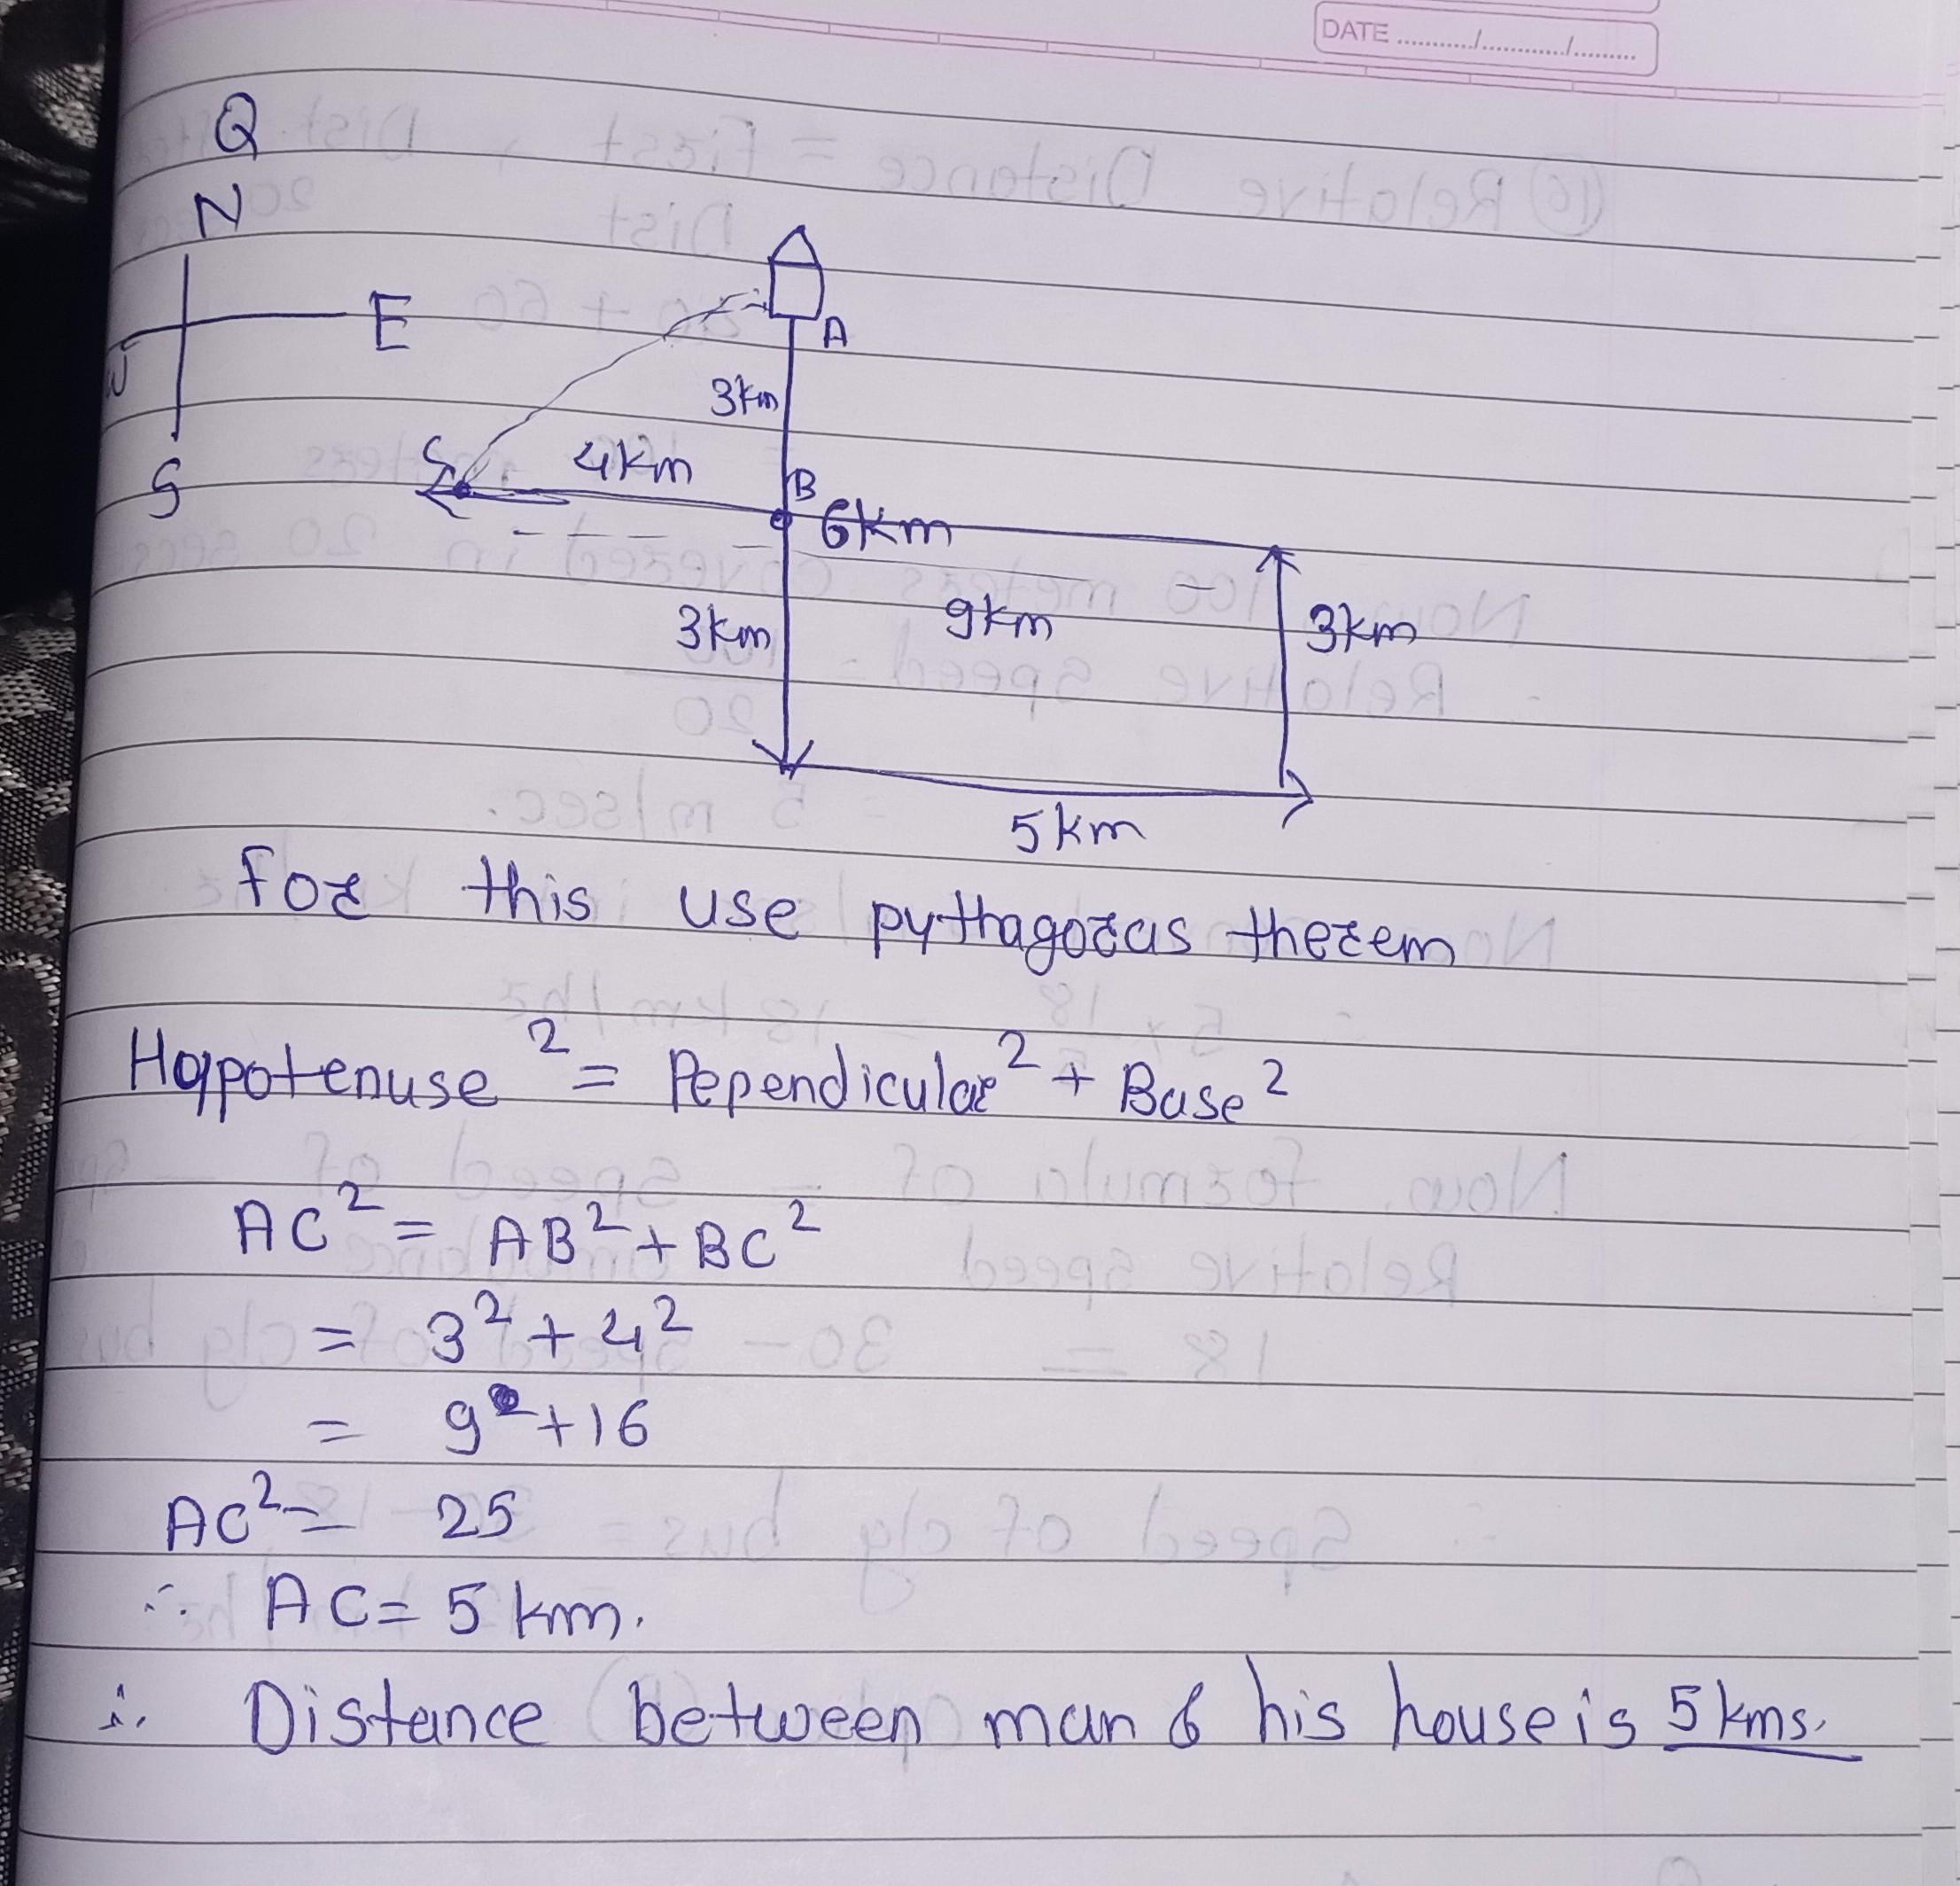 DATE ........../............/.........
Q
N
E
W
S
A
3km
C
4km
B
6km
3km
9km
3km
5km
for this use pythagoras therem
Hoypotenuse² = Pependicular² + Base²
AC² = AB² + BC²
= 3² + 4²
= 9 + 16
AC² = 25
∴ AC = 5 km.
∴ Distance between man & his house is 5 kms.